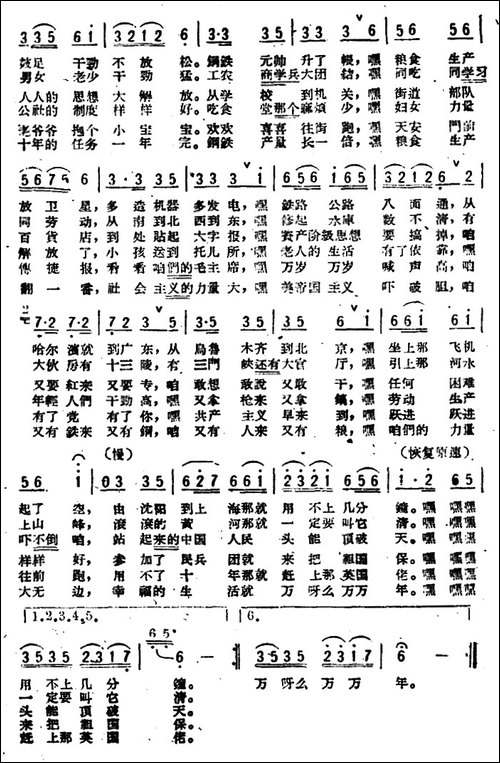 3 3 5 6 i 3 2 1 2 6. 3·3 3 5 3 3 3 6 5 6 5 6
鼓足 干勁 不 放 松。鋼鉄 元帅 升了 帳,嘿 粮食 生产
男女 老少 干勁 猛。工农 商学兵大团 結,嘿 同吃 同学习
人人的 思想 大 解 放。从学 校 到机 关,嘿 街道 部队
公社的 制度 样 样 好。吃食 堂那个麻煩 少,嘿 妇女 力量
老爷爷 抱个 小 宝 宝。欢欢 喜喜 往街 跑,嘿 天安 門前
十年的 任务 一 年 完。鋼鉄 产量 长一 倍,嘿 粮食 生产
5 6 7 6 7 5 6 3·3 3 5 3 5 2 3 6 5 6 5 5 3 5 3 5 6 i 6
放 卫 星,多 造 机器 多发 电,嘿 鉄路 公路 八 面 通,从
同 劳 动,从 南到 北 西到 东,嘿 修起 水庫 数 不 清,有
百 貨 店,到 处 貼起 大字 报,嘿 資产阶級 思想 要 搞 掉,咱
解 放 了,小 孩 送到 托儿 所,嘿 老人 的 生活 有了 依 靠,嘿
傳 捷 报,看 看 咱們的 毛主 席,嘿 万岁 万岁 喊 声 高,咱
翻 一 番,社 会 主义的 力量 大,嘿 英帝国 主义 吓 破 胆,咱
7·2 7·2 7 2 3 5 3·5 3 5 3 5 6 i 6 6 i i 6 i
哈尔 濱就 到 广 东,从 烏魯 木齐 到北 京,嘿 坐上 那 飞机
大伙 房有 十三 陵,有 三門 峽还有 大官 厅,嘿 引上 那 河水
又要 紅来 又要 专,咱 敢想 敢說 又敢 干,嘿 任何 困难
年輕 人們 干劲 高,嘿 又拿 枪来 又拿 鎬,嘿 劳动 生产
有了 党 有了 你,嘿 共产 主义 早来 到,嘿 跃进 跃进
又有 鉄来 又有 鋼,咱 又有 人来 又有 粮,嘿 咱們的 力量
(慢) (恢复原速)
5 6 i 0 3 3 5 6 2 7 6 6 i 2 3 2 1 5 6 5 6 i·2 6 5
起了 空,由 沈阳 到上 海那就 用 不上 几分 鐘。嘿 嘿嘿
上山 峰,滾 滾的 黄 河那就 一 定要 叫它 清。嘿 嘿嘿
吓不倒 咱,站 起来的 中国 人民 头 能 頂破 天。嘿 嘿嘿
样样 好,参 加了 民兵 团就 来 把 祖国 保。嘿 嘿嘿
往前 跑,用 不了 十 年那就 赶 上那 英国 佬。嘿 嘿嘿
大无 边,幸 福的 生 活就 万 呀么 万万 年。嘿 嘿嘿
1.2.3.4.5. 6.
3 5 3 5 2 3 1 7 6 5 6 - 3 5 3 5 2 3 1 7 6 -
用 不上 几分 鐘。 万 呀么 万万 年。
一 定要 叫它 清。
头 能 頂破 天。
来 把 祖国 保。
赶 上那 英国 佬。